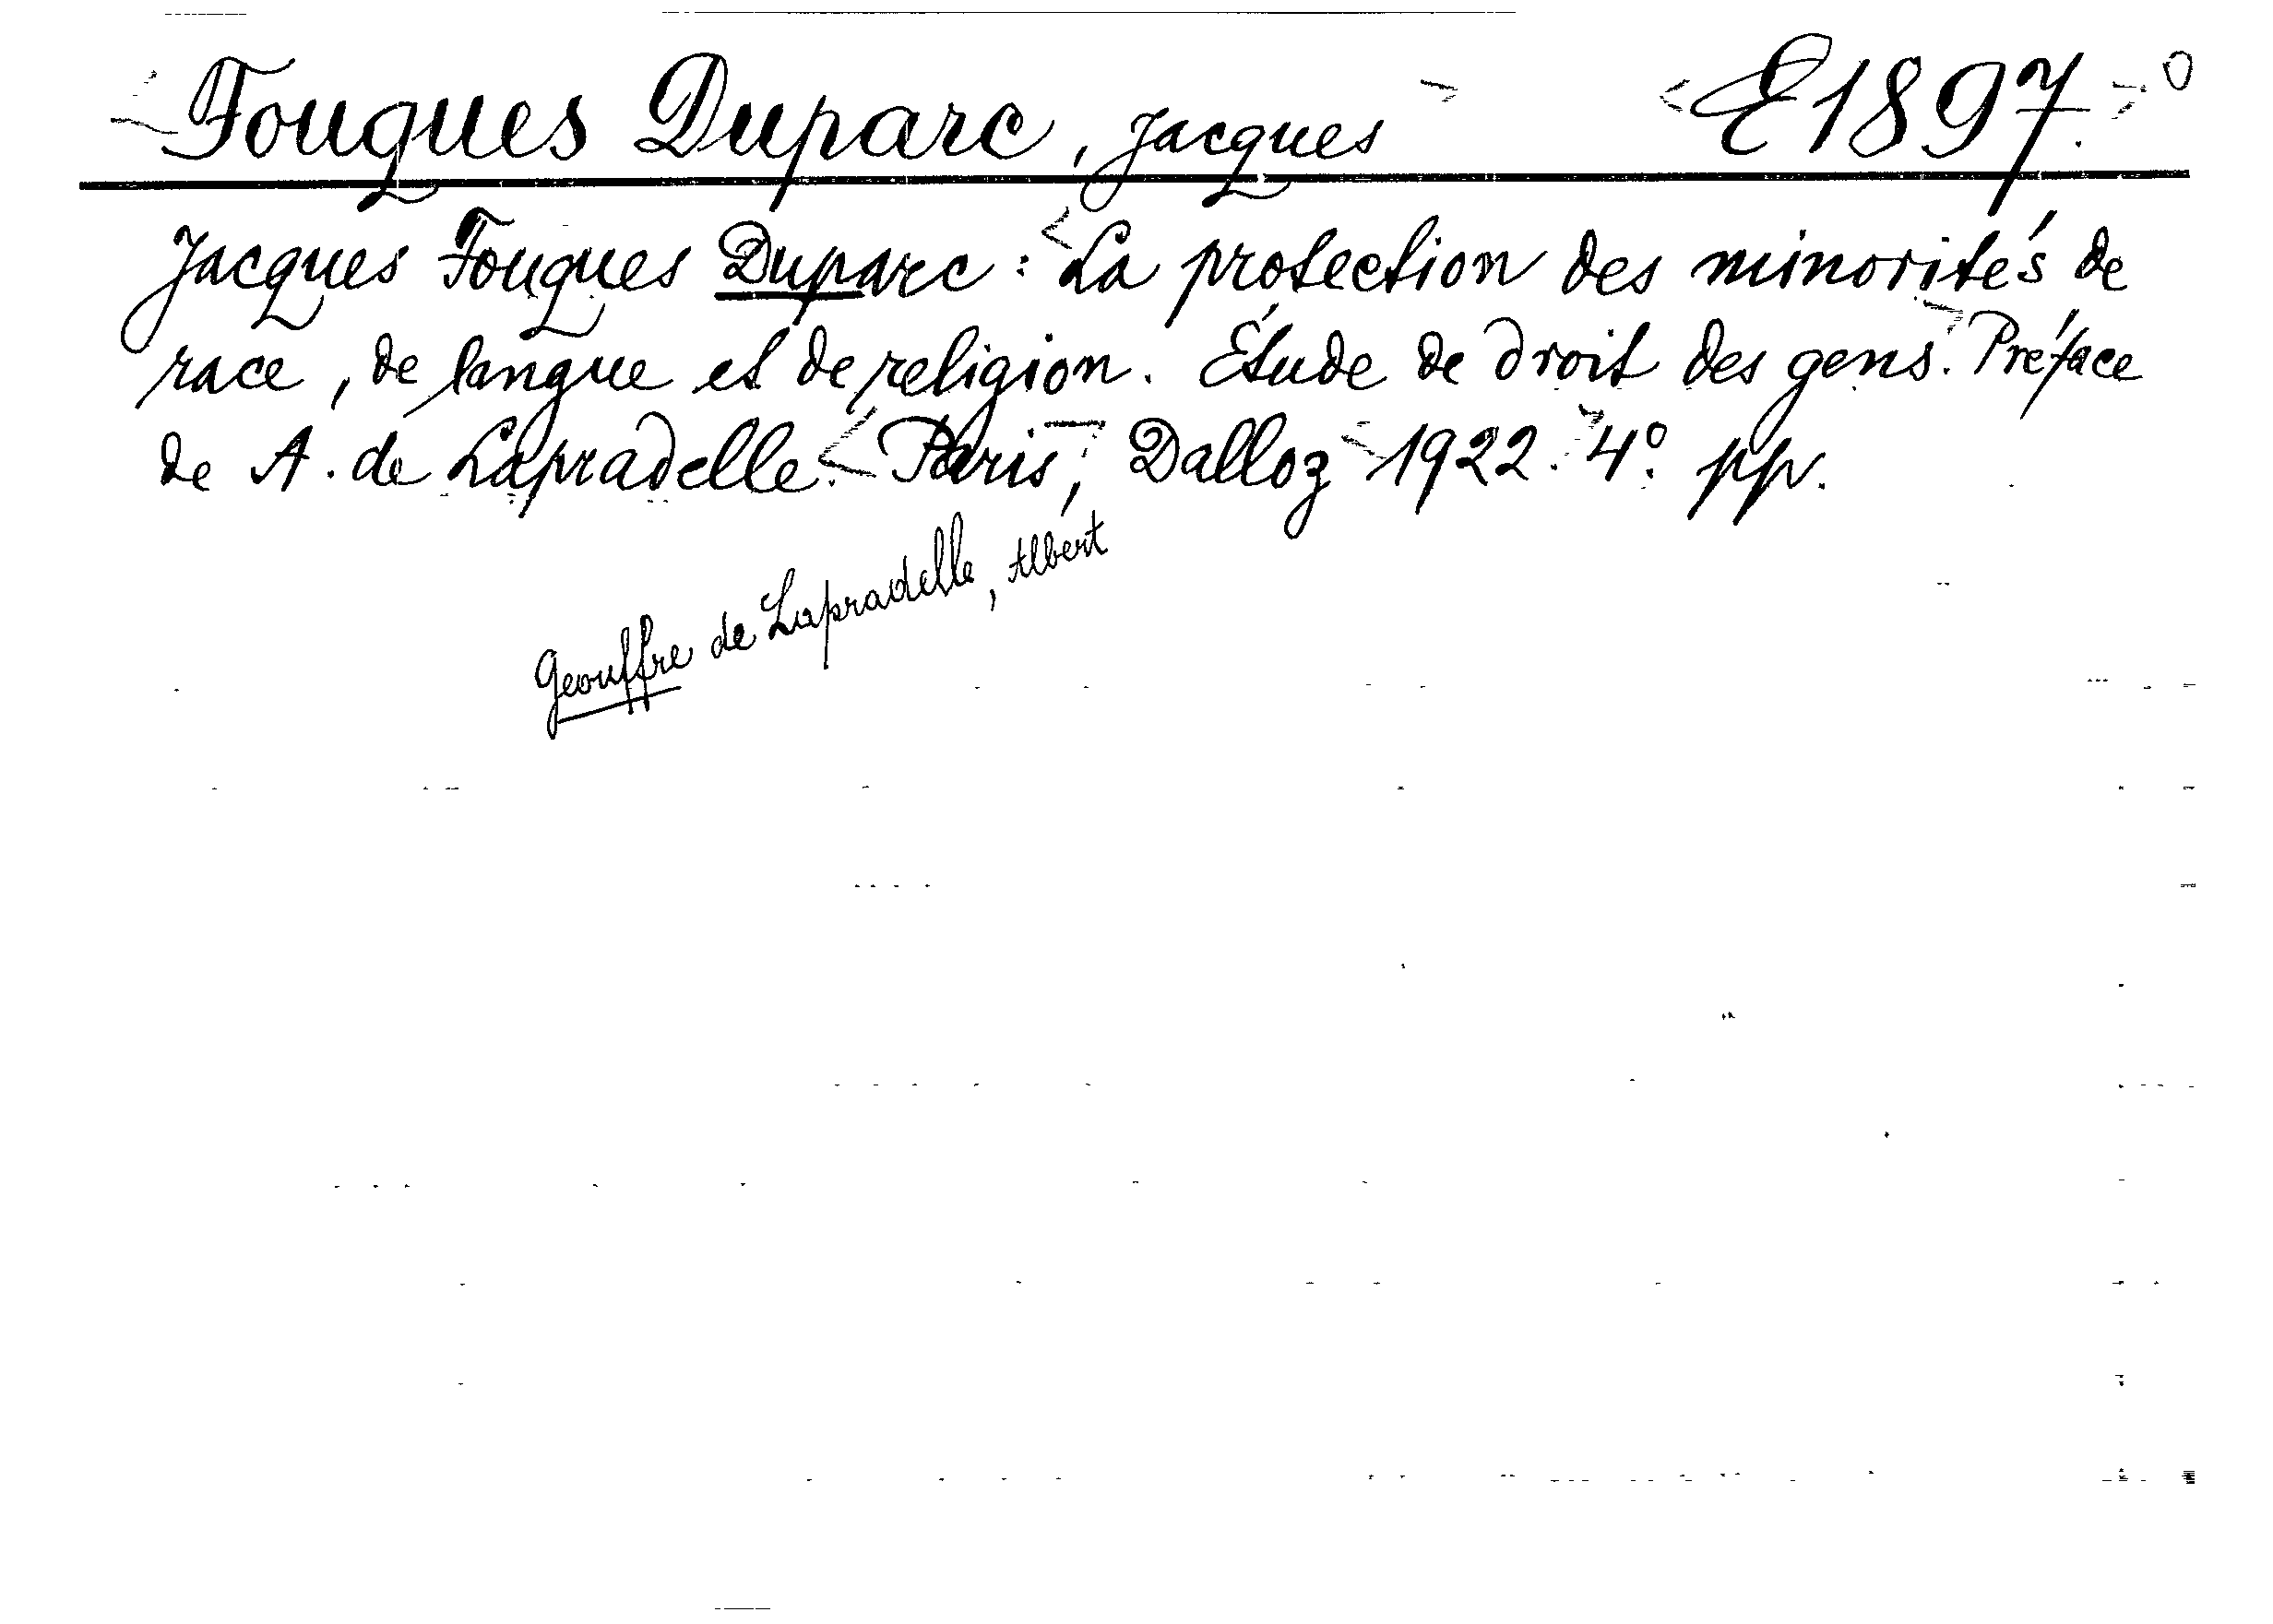 Fouques Duparc, Jacques E1897.
Jacques Fouques Duparc: La protection des minorités de
race, de langue et de religion. Étude de droit des gens. Préface
de A. de Lapradelle. Paris, Dalloz 1922. 4º. pp.
Geouffre de Lapradelle, Albert